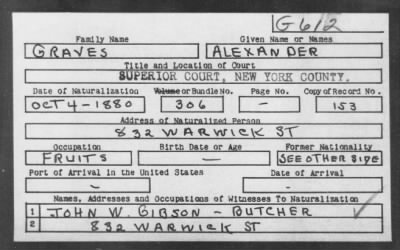 G612
Family Name Given Name or Names
GRAVES ALEXANDER
Title and Location of Court
SUPERIOR COURT, NEW YORK COUNTY.
Date of Naturalization Volume or Bundle No. Page No. Copy of Record No.
OCT 4-1880 306 - 153
Address of Naturalized Person
832 WARWICK ST
Occupation Birth Date or Age Former Nationality
FRUITS - SEE OTHER SIDE
Port of Arrival in the United States Date of Arrival
- -
Names, Addresses and Occupations of Witnesses To Naturalization
1 JOHN W. GIBSON - BUTCHER
2 832 WARWICK ST